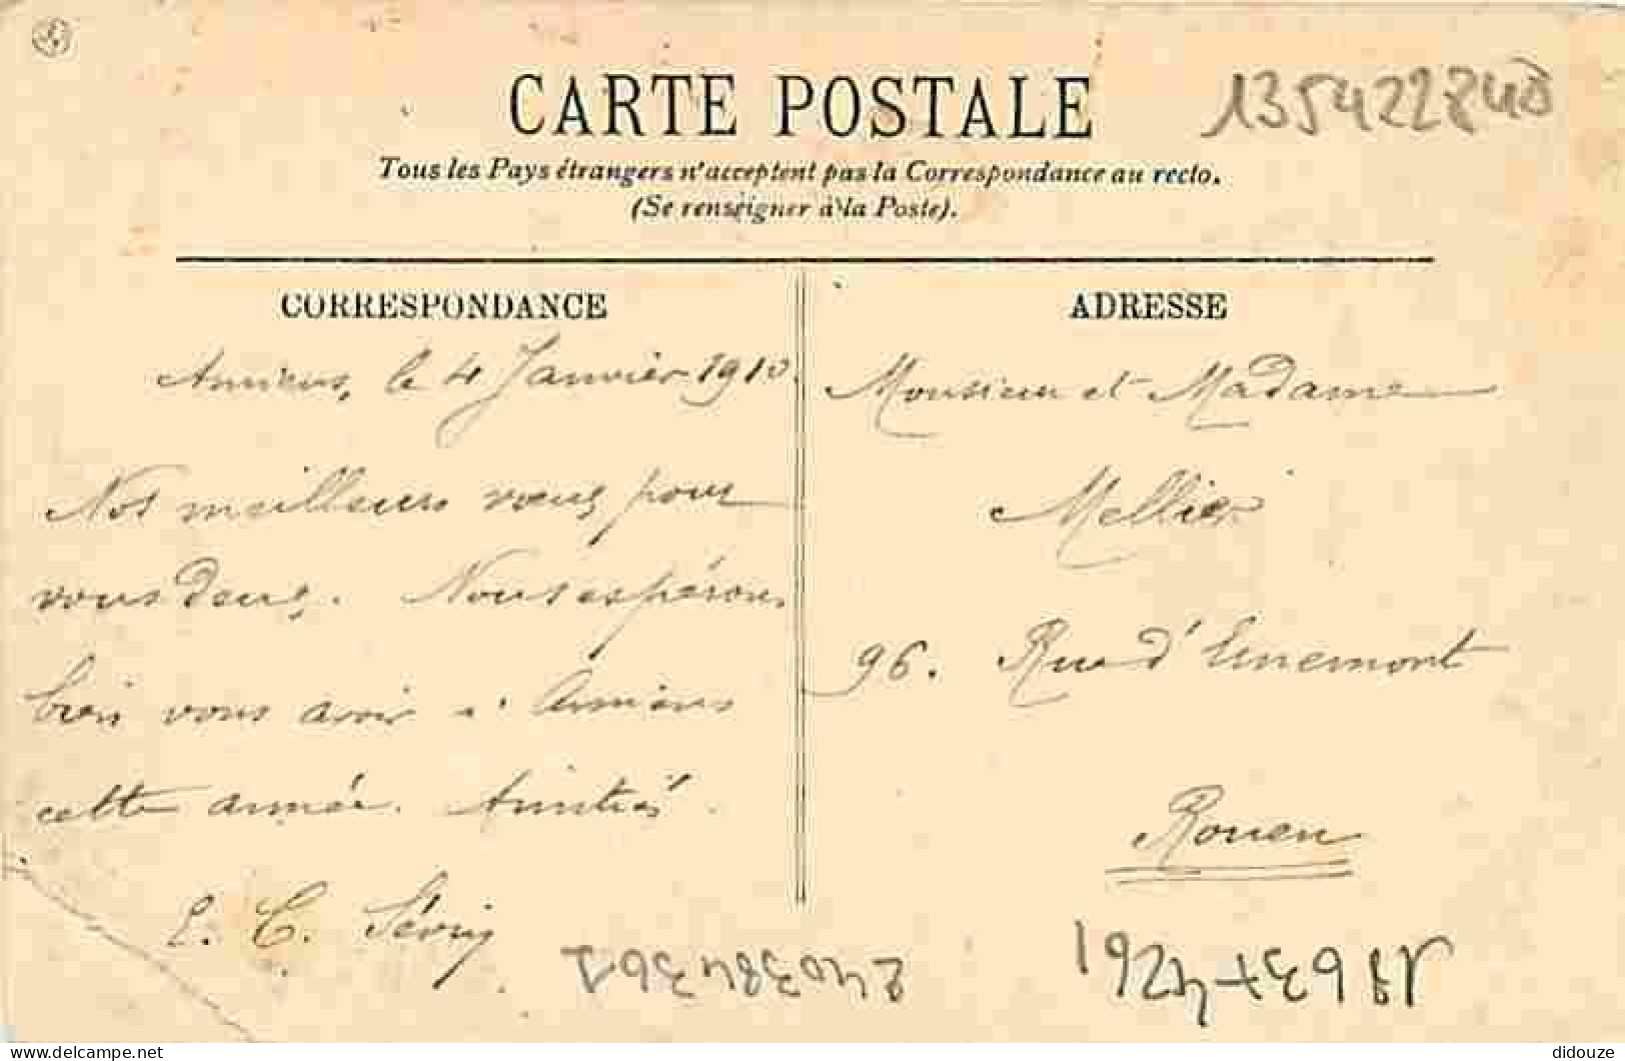 CARTE POSTALE
135422840
Tous les Pays étrangers n'acceptent pas la Correspondance au recto.
(Se renseigner à la Poste).
CORRESPONDANCE
Amiens, le 4 Janvier 1910
Nos meilleurs vœux pour
vous deux. Nous espérons
bien vous avoir à Amiens
cette année. Amitiés.
E. C. Sévin
ADRESSE
Monsieur et Madame
Mellier
96. Rue d'Ernemont
Rouen
delcampe.net
didouze